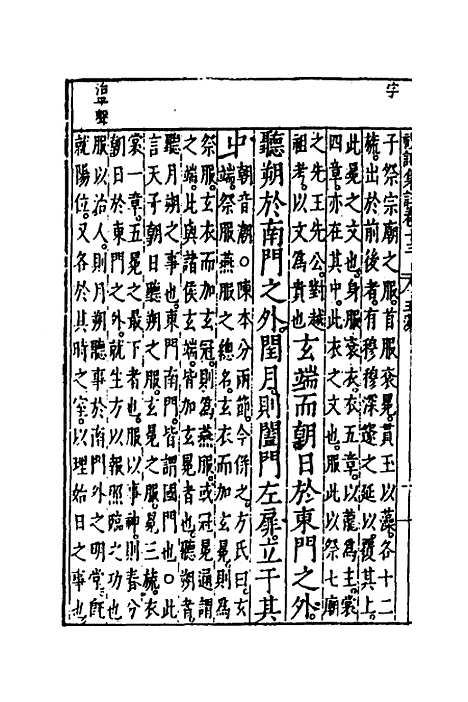 字
禮記集說卷十三 玉藻
子祭宗廟之服首服袞冕貫玉以藻各十二
旒出於前後者有穆穆深邃之延以覆其上
此冕之文也身服袞衣衣五章以龍為主裳
四章亦在其中此衣之文也服此以祭七廟
之先王先公對越
祖考以文為貴也
玄端而朝日於東門之外
聽朔於南門之外閏月則闔門左扉立于其
中
朝音潮○陳本分兩節今併之方氏曰玄
端祭服燕服之總名玄衣而加玄冕則為
祭服玄衣而加玄冠則為燕服或冠冕通謂
之端此與諸侯玄端皆加玄冕者也聽朔者
聽月朔之事也東門南門皆謂國門也○此
言天子朝日聽朔之服玄冕之服冕三旒衣
裳一章五冕之最下者也服以事神則春分
朝日於東門之外就生方以報照臨之功也
服以治人則月朔聽事於南門外之明堂既
就陽位又各於其時之室以理始日之事也
治平聲